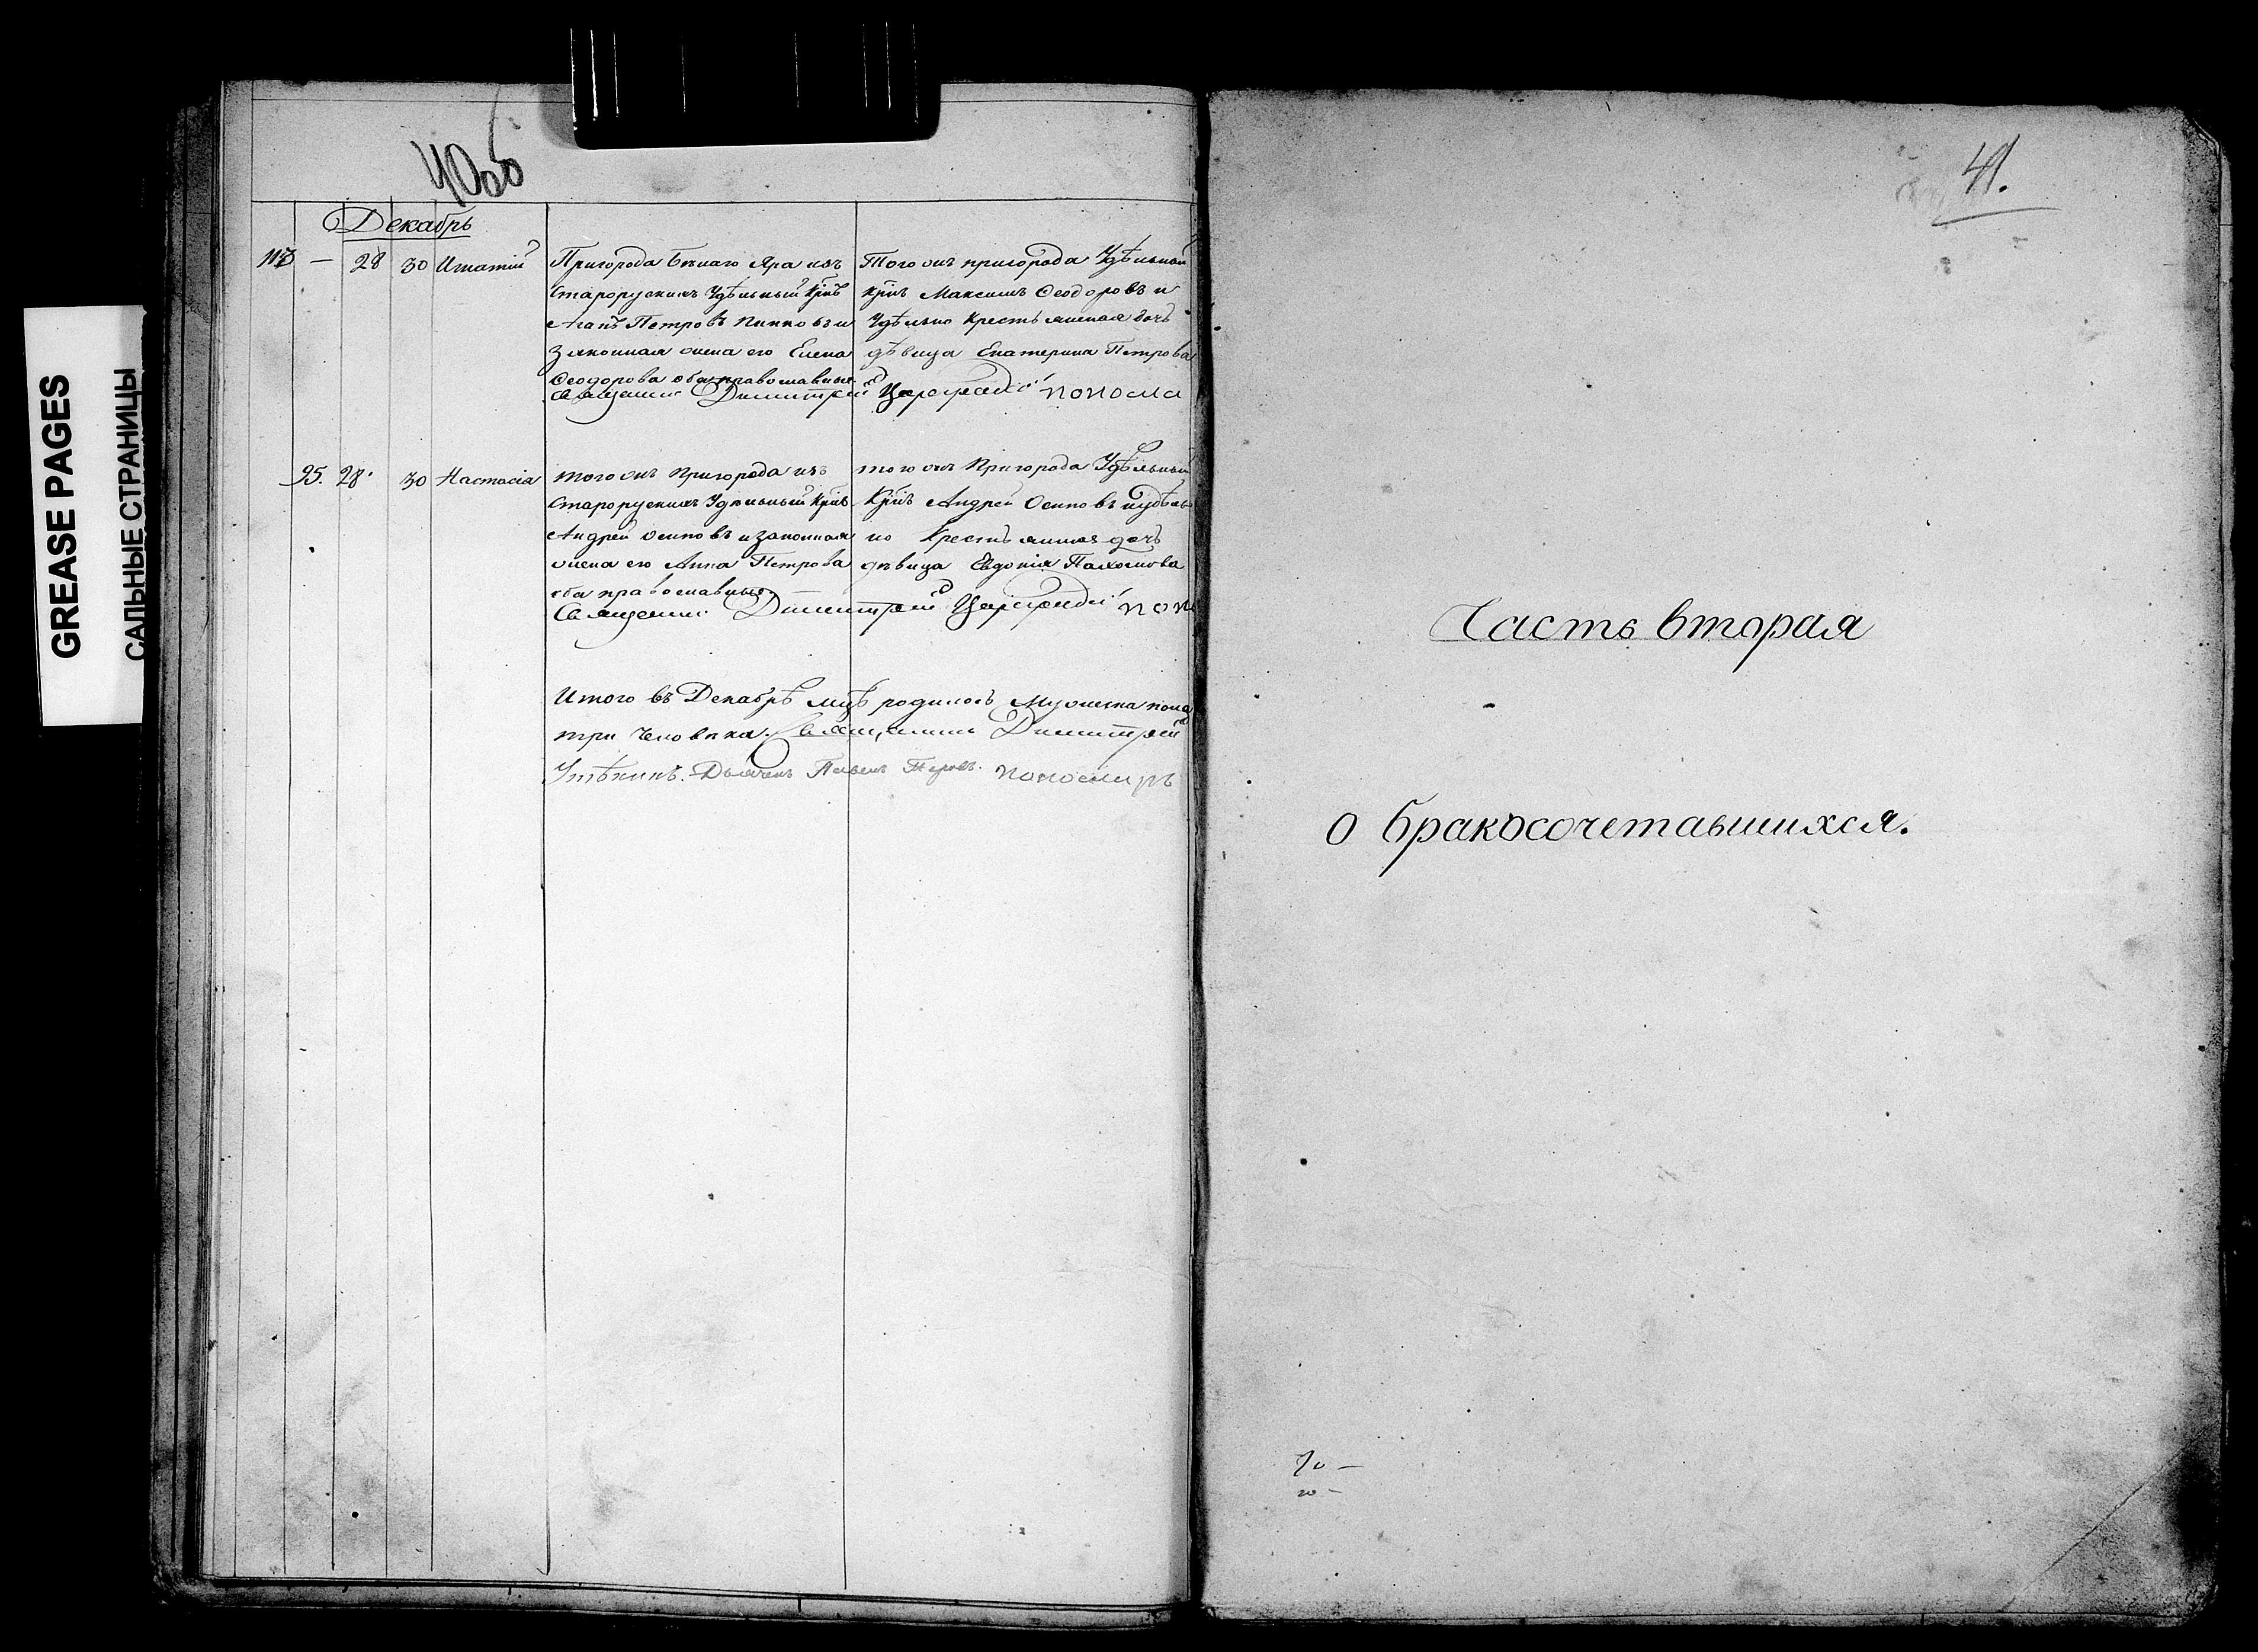 GREASE PAGES
САЛЬНЫЕ СТРАНИЦЫ
40об
Декабрь
113 — 28 30 Игнатій
Пригорода Бѣлаго Яра изъ
старорускихъ Удѣльный Крнъ
Агапъ Петровъ и
законная жена его Елена
Ѳеодорова оба православные
Того жъ пригорода Удѣльный
крнъ Максимъ Ѳеодоровъ и
Удѣльно Крестьянская дочь
дѣвица Екатерина Петрова
Священникъ Димитрій понома
95. 28. 30 Настасія
того жъ Пригорода изъ
старорускихъ Удѣльный Крнъ
Андрей Осиповъ и законная
жена его Анна Петрова
оба православные
того жъ Пригорода Удѣльный
Крнъ Андрей Осиповъ и удѣль
но Крестьянская дочь
дѣвица Евдокія Пахомова
Священникъ Димитрій поно
Итого въ Декабрѣ мцѣ родилось Мужеска пола
три человѣка. Священникъ Димитрій
Утѣхинъ. Дьячекъ Павелъ пономарь
41.
Часть вторая
о бракосочетавшихся.